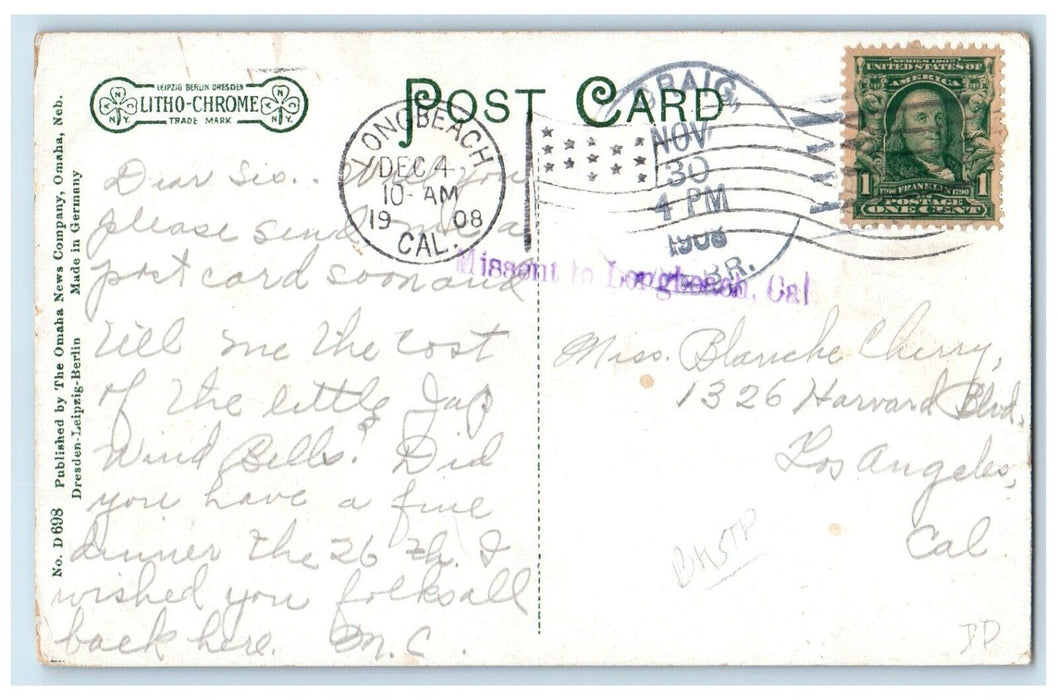 POST CARD
LEIPZIG BERLIN DRESDEN
LITHO-CHROME
TRADE MARK
N.Y.
No. D 698 Published by The Omaha News Company, Omaha, Neb.
Dresden-Leipzig-Berlin Made in Germany
LONGBEACH
DEC 4
10-AM
1908
CAL.
CRAIG,
NOV
30
4 PM
1908
Missent to Longbeach, Cal
SERIES 1902
UNITED STATES OF
AMERICA
1706 FRANKLIN 1790
1 1
POSTAGE
ONE CENT
Dear Sis.. Will you
please send me a
post card soon and
tell me the cost
of the little Jap
Wind Bells! Did
you have a fine
dinner the 26 th. I
wished you folks all
back here. M.C.
Miss. Blanche Cherry,
1326 Harvard Blvd.
Los Angeles,
Cal.
BKSTP